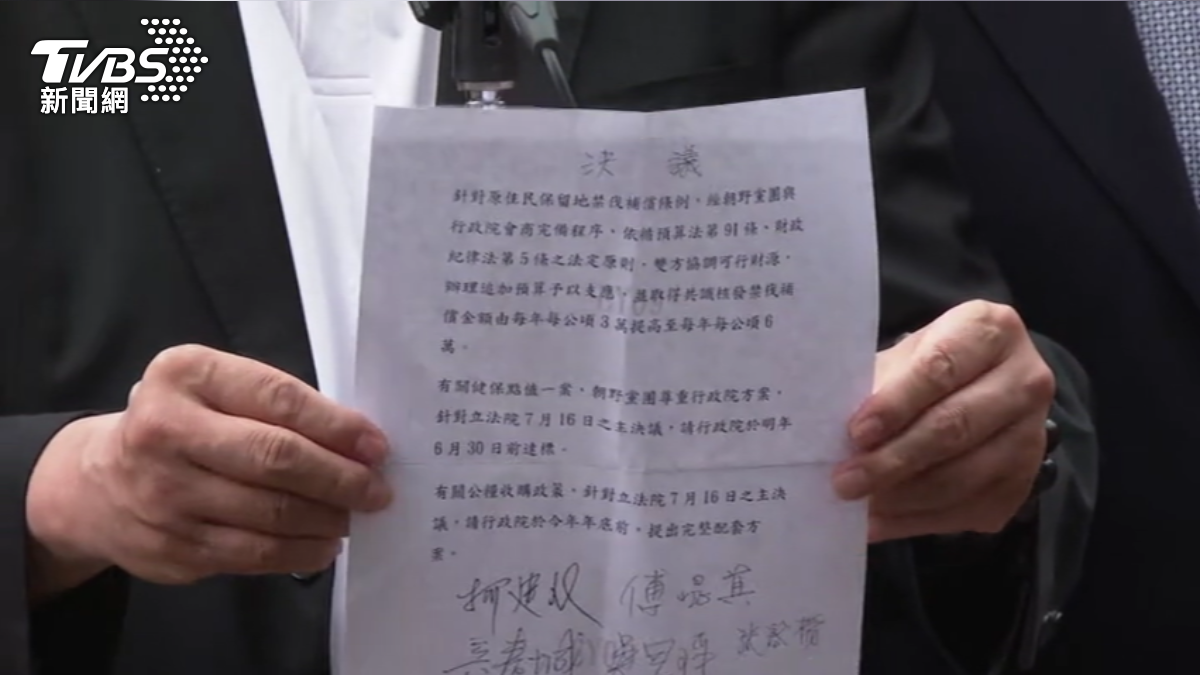 TVBS
新聞網
決 議
針對原住民保留地禁伐補償條例，經朝野黨團與
行政院會商完備程序、依循預算法第91條、財政
紀律法第5條之法定原則，雙方協調可行財源，
辦理追加預算予以支應，並取得共識核發禁伐補
償金額由每年每公頃3萬提高至每年每公頃6
萬。
有關健保點值一案，朝野黨團尊重行政院方案，
針對立法院7月16日之主決議，請行政院於明年
6月30日前達標。
有關公糧收購政策，針對立法院7月16日之主決
議，請行政院於今年年底前，提出完整配套方
案。
柯建銘 傅崐萁
吳春城 張啓楷